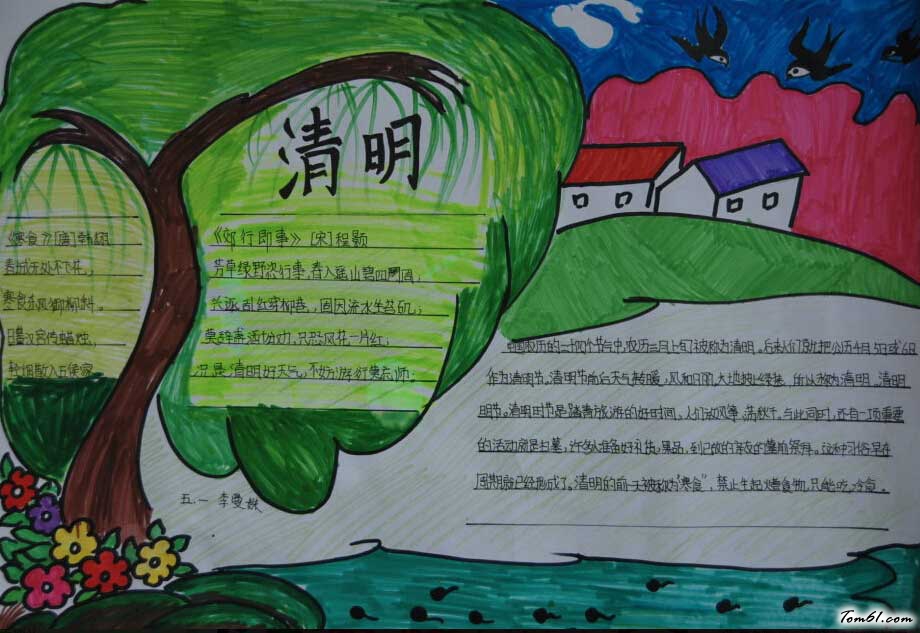 清明
《寒食》[唐]韩翃
春城无处不飞花,
寒食东风御柳斜。
日暮汉宫传蜡烛,
轻烟散入五侯家
《郊行即事》[宋]程颢
芳草绿野恣行事,春入遥山碧四周;
长逐乱红穿柳巷,固因流水坐苔矶;
莫辞盏酒切劝,只恐风花一片红;
况是清明好天气,不妨游衍莫忘归。
中国农历的二十四个节气中,农历三月上旬被称为清明。后来人们就把公历4月5日或6日
作为清明节。清明节前后天气转暖,风和日丽,大地披上绿装,所以称为清明。清明
明节。清明时节是踏青旅游的好时间,人们放风筝,荡秋千,与此同时,还有一项重要
的活动就是扫墓,许多人准备好礼货,果品,到已故的亲友的墓前祭拜。这种习俗早在
周期就已经形成了。清明的前一天被称为"寒食",禁止生起火煮食物,只能吃冷食。
五.一 李曼姝
Tom61.com